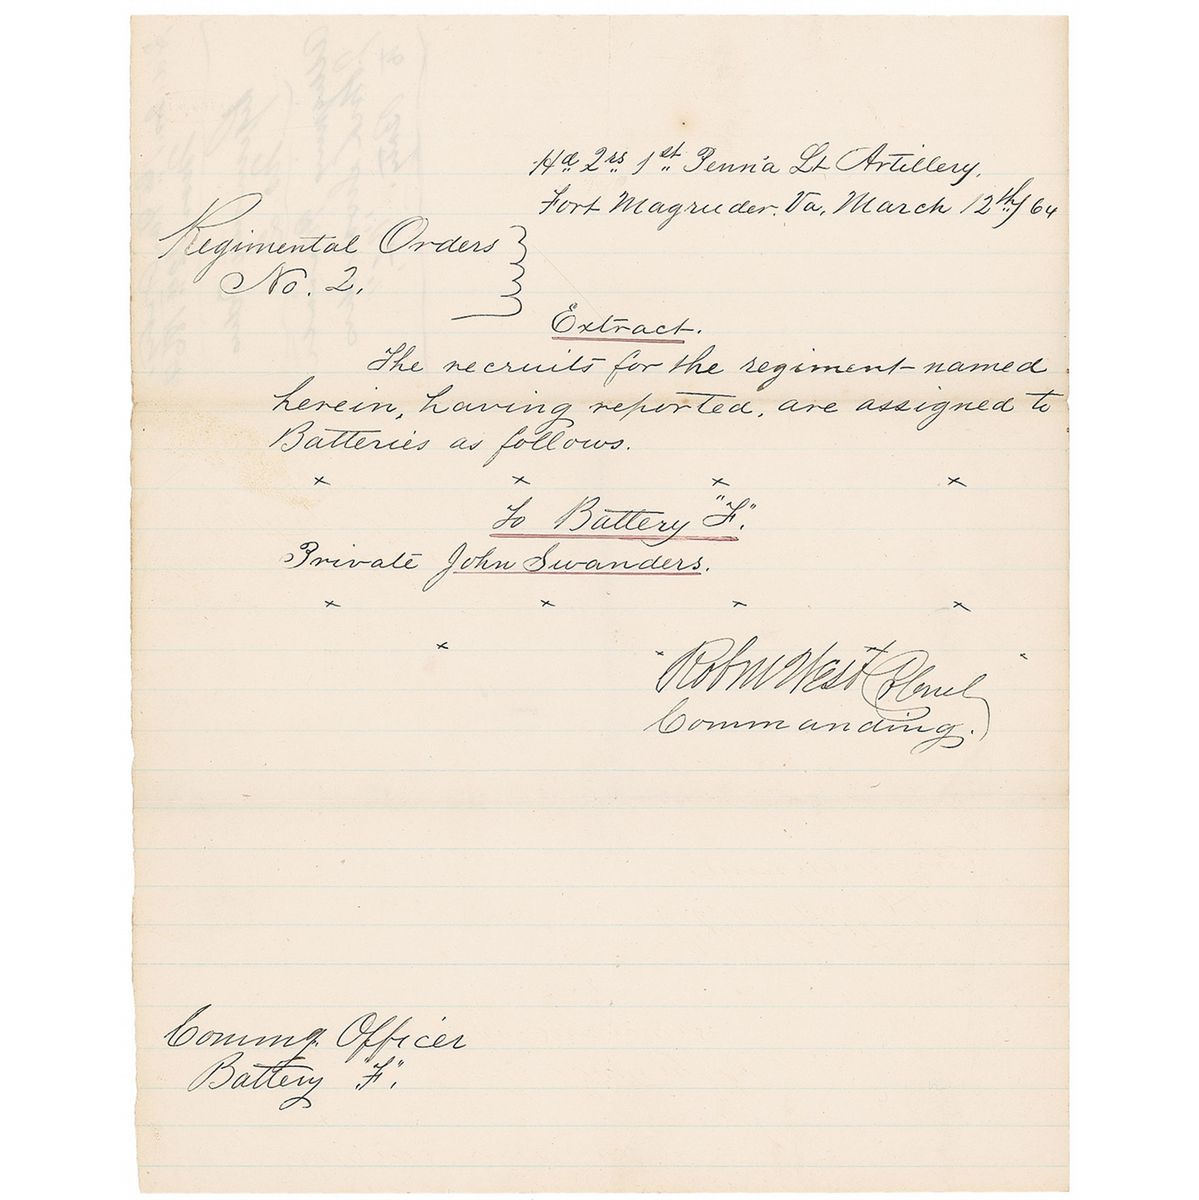 Hd 2rs 1st Penn'a Lt Artillery.
Fort Magruder. Va, March 12th/64
Regimental Orders
No. 2.
Extract.
The recruits for the regiment named
herein, having reported, are assigned to
Batteries as follows.
x x x x
To Battery "F".
Private John Swanders.
x x x x
x x x
Rob M West Colonel
Commanding.
Commg Officer
Battery "F".